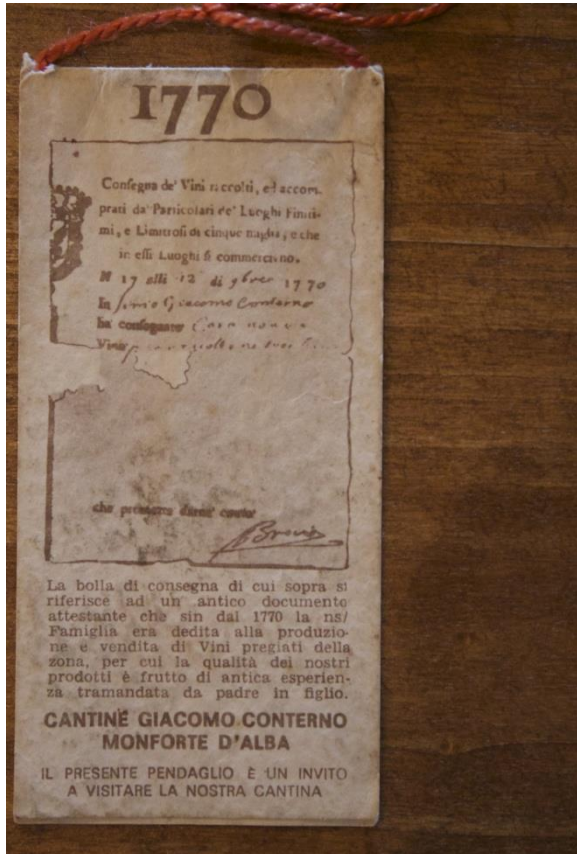 1770
Consegna de' Vini raccolti, ed accom.
prati da' Particolari de' Luoghi Finiti-
mi, e Limitrofi di cinque miglia, e che
in essi Luoghi si commerciano.
N 17 alli 12 di 9bre 1770
In Giacomo Conterno
ha consegnato
Vino
che presterra darne conto
La bolla di consegna di cui sopra si
riferisce ad un antico documento
attestante che sin dal 1770 la ns/
Famiglia era dedita alla produzio-
ne e vendita di Vini pregiati della
zona, per cui la qualità dei nostri
prodotti è frutto di antica esperien-
za tramandata da padre in figlio.
CANTINE GIACOMO CONTERNO
MONFORTE D'ALBA
IL PRESENTE PENDAGLIO È UN INVITO
A VISITARE LA NOSTRA CANTINA